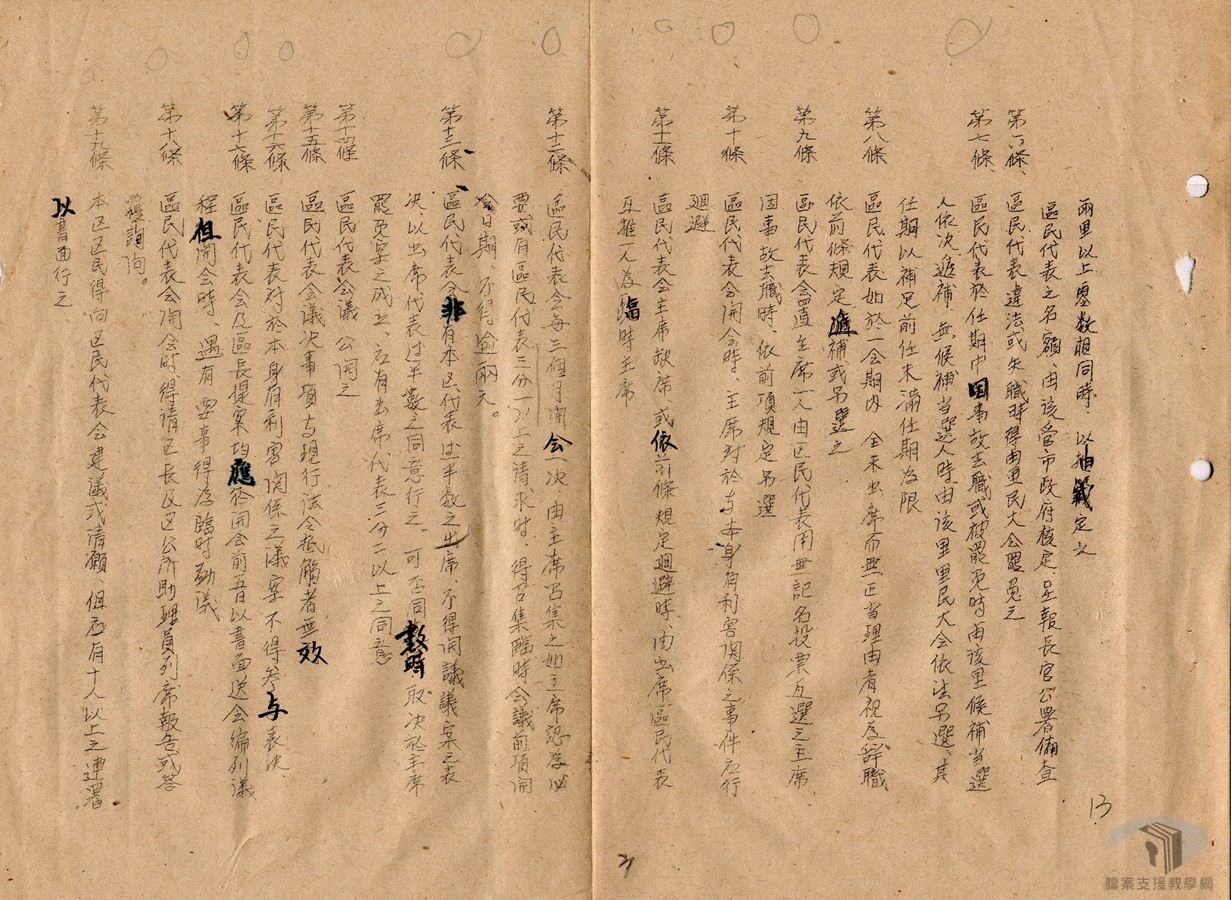 兩里以上塁数相同時、以抽籤定之
區民代表之名額、由該管市政府核定、呈報長官公署備查
第六條、區民代表違法或失職時得由里民大会罷免之
第七條、區民代表於任期中因事故去職或被罷免時由該里候補当選
人依次遞補、無候補当選人時由該里里民大会依法另選、其
任期以補足前任未滿任期為限
第八條 區民代表如於一会期内 全未出席而無正当理由者視為辞職
依前條規定遞補或另選之
第九條 區民代表会置主席一人由区民代表用無記名投票互選之主席
因事故去職時、依前項規定另選
第十條 區民代表会開会時、主席对於与本身有利害関係之事件应行
迴避
第十一條 區民代表会主席缺席或依前條規定迴避時、由出席區民代表
互推一人為臨時主席
13
第十二條 區民代表会每三個月開会一次 由主席召集之如主席認為必
要或有區民代表三分一以上之請求时、得召集臨時会議前項開
会日期、不得逾兩天。
第十三條、區民代表会非有本区代表过半数之出席、不得開議議案之表
决、以出席代表过半数之同意行之。可否同数時、取决於主席
罷免案之成立、应有出席代表三分二以上之同意
第十四條 區民代表会議 公開之
第十五條 區民代表会議决事項与現行法令抵觸者無效
第十六條 區民代表对於本身有利害関係之議案 不得参与表决
第十七條 區民代表会及區長提案均應於開会前五日以書面送会編列議
程但開会時、遇有 要事得為臨时動議
第十八條 區民代表会開会时、得請区長及区公所助理員列席報告或答
覆詢问。
第十九條 本区区民得向区民代表会建議或請願、但应有十人以上之連署
以書面行之
檔案支援教學網